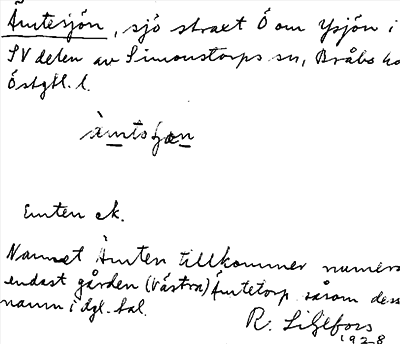 Ämtesjön, sjö straxt Ö om Ysjön i
SV delen av Simonstorps sn, Bråbo
Östgtl. l.
Emten ek.
Namnet Ämten tillkommer numera
endast gården (Västra) Ämtetorp såsom dess
namn i dgl. tal.
R. Liljefors
1928